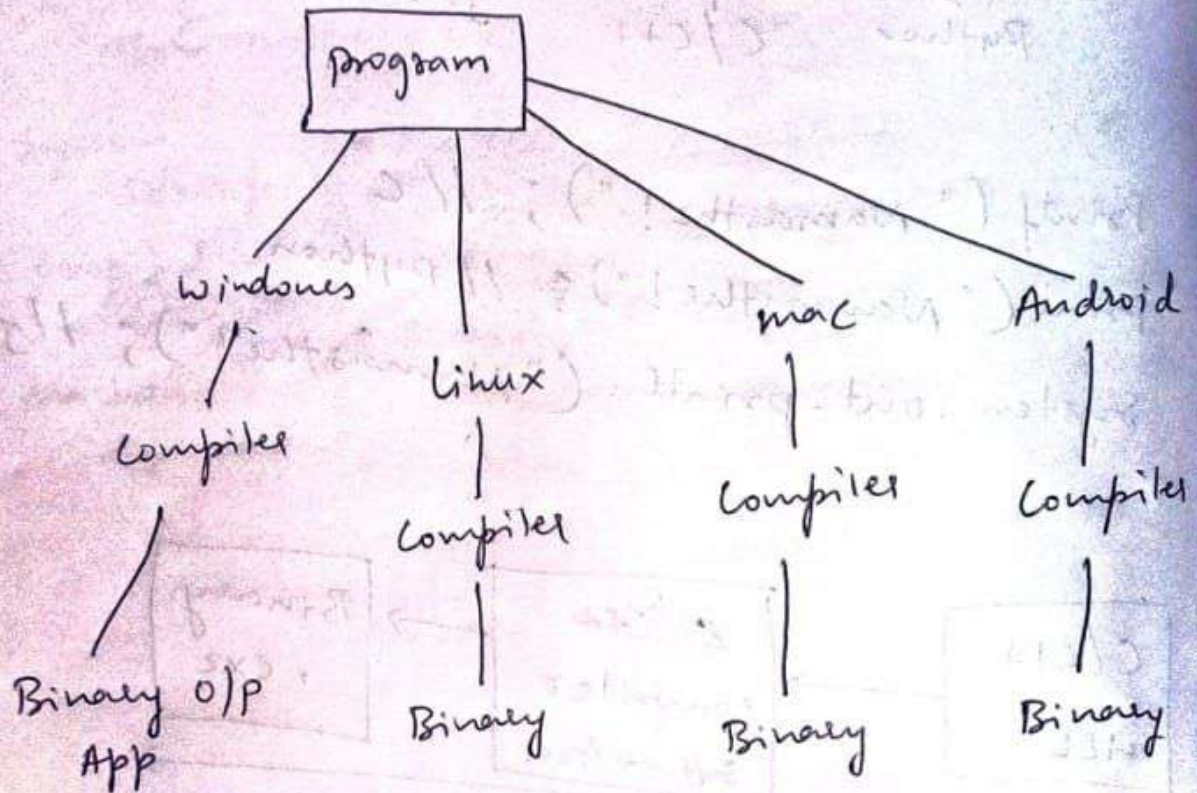 program
windowes
Linux
mac
Android
Compiler
Compiler
Compiler
Compiler
Binary O/P
App
Binary
Binary
Binary